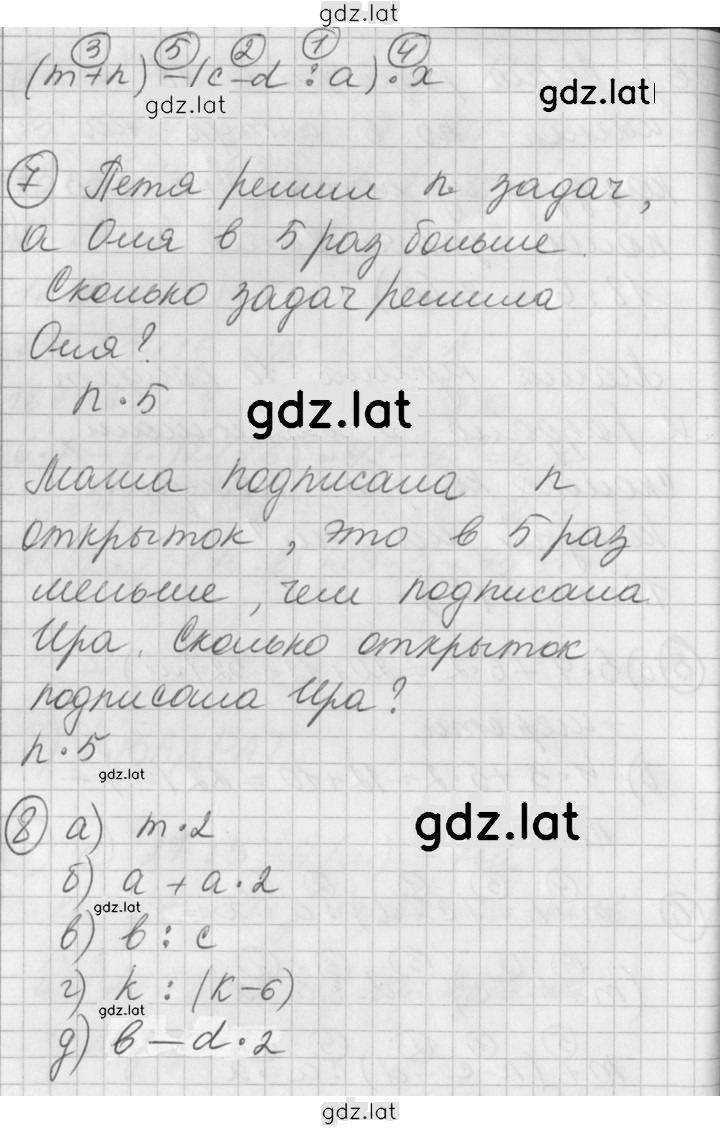 gdz.lat
3 5 2 1 4
(m+n) – (c–d : a) · x
gdz.lat
gdz.lat
7 Петя решил n задач,
а Оля в 5 раз больше.
Сколько задач решила
Оля?
n · 5
gdz.lat
Маша подписала n
открыток, это в 5 раз
меньше, чем подписала
Ира. Сколько открыток
подписала Ира?
n · 5
gdz.lat
8 а) m · 2
gdz.lat
б) a + a · 2
gdz.lat
в) в : c
г) k : (k–6)
gdz.lat
д) в – d · 2
gdz.lat